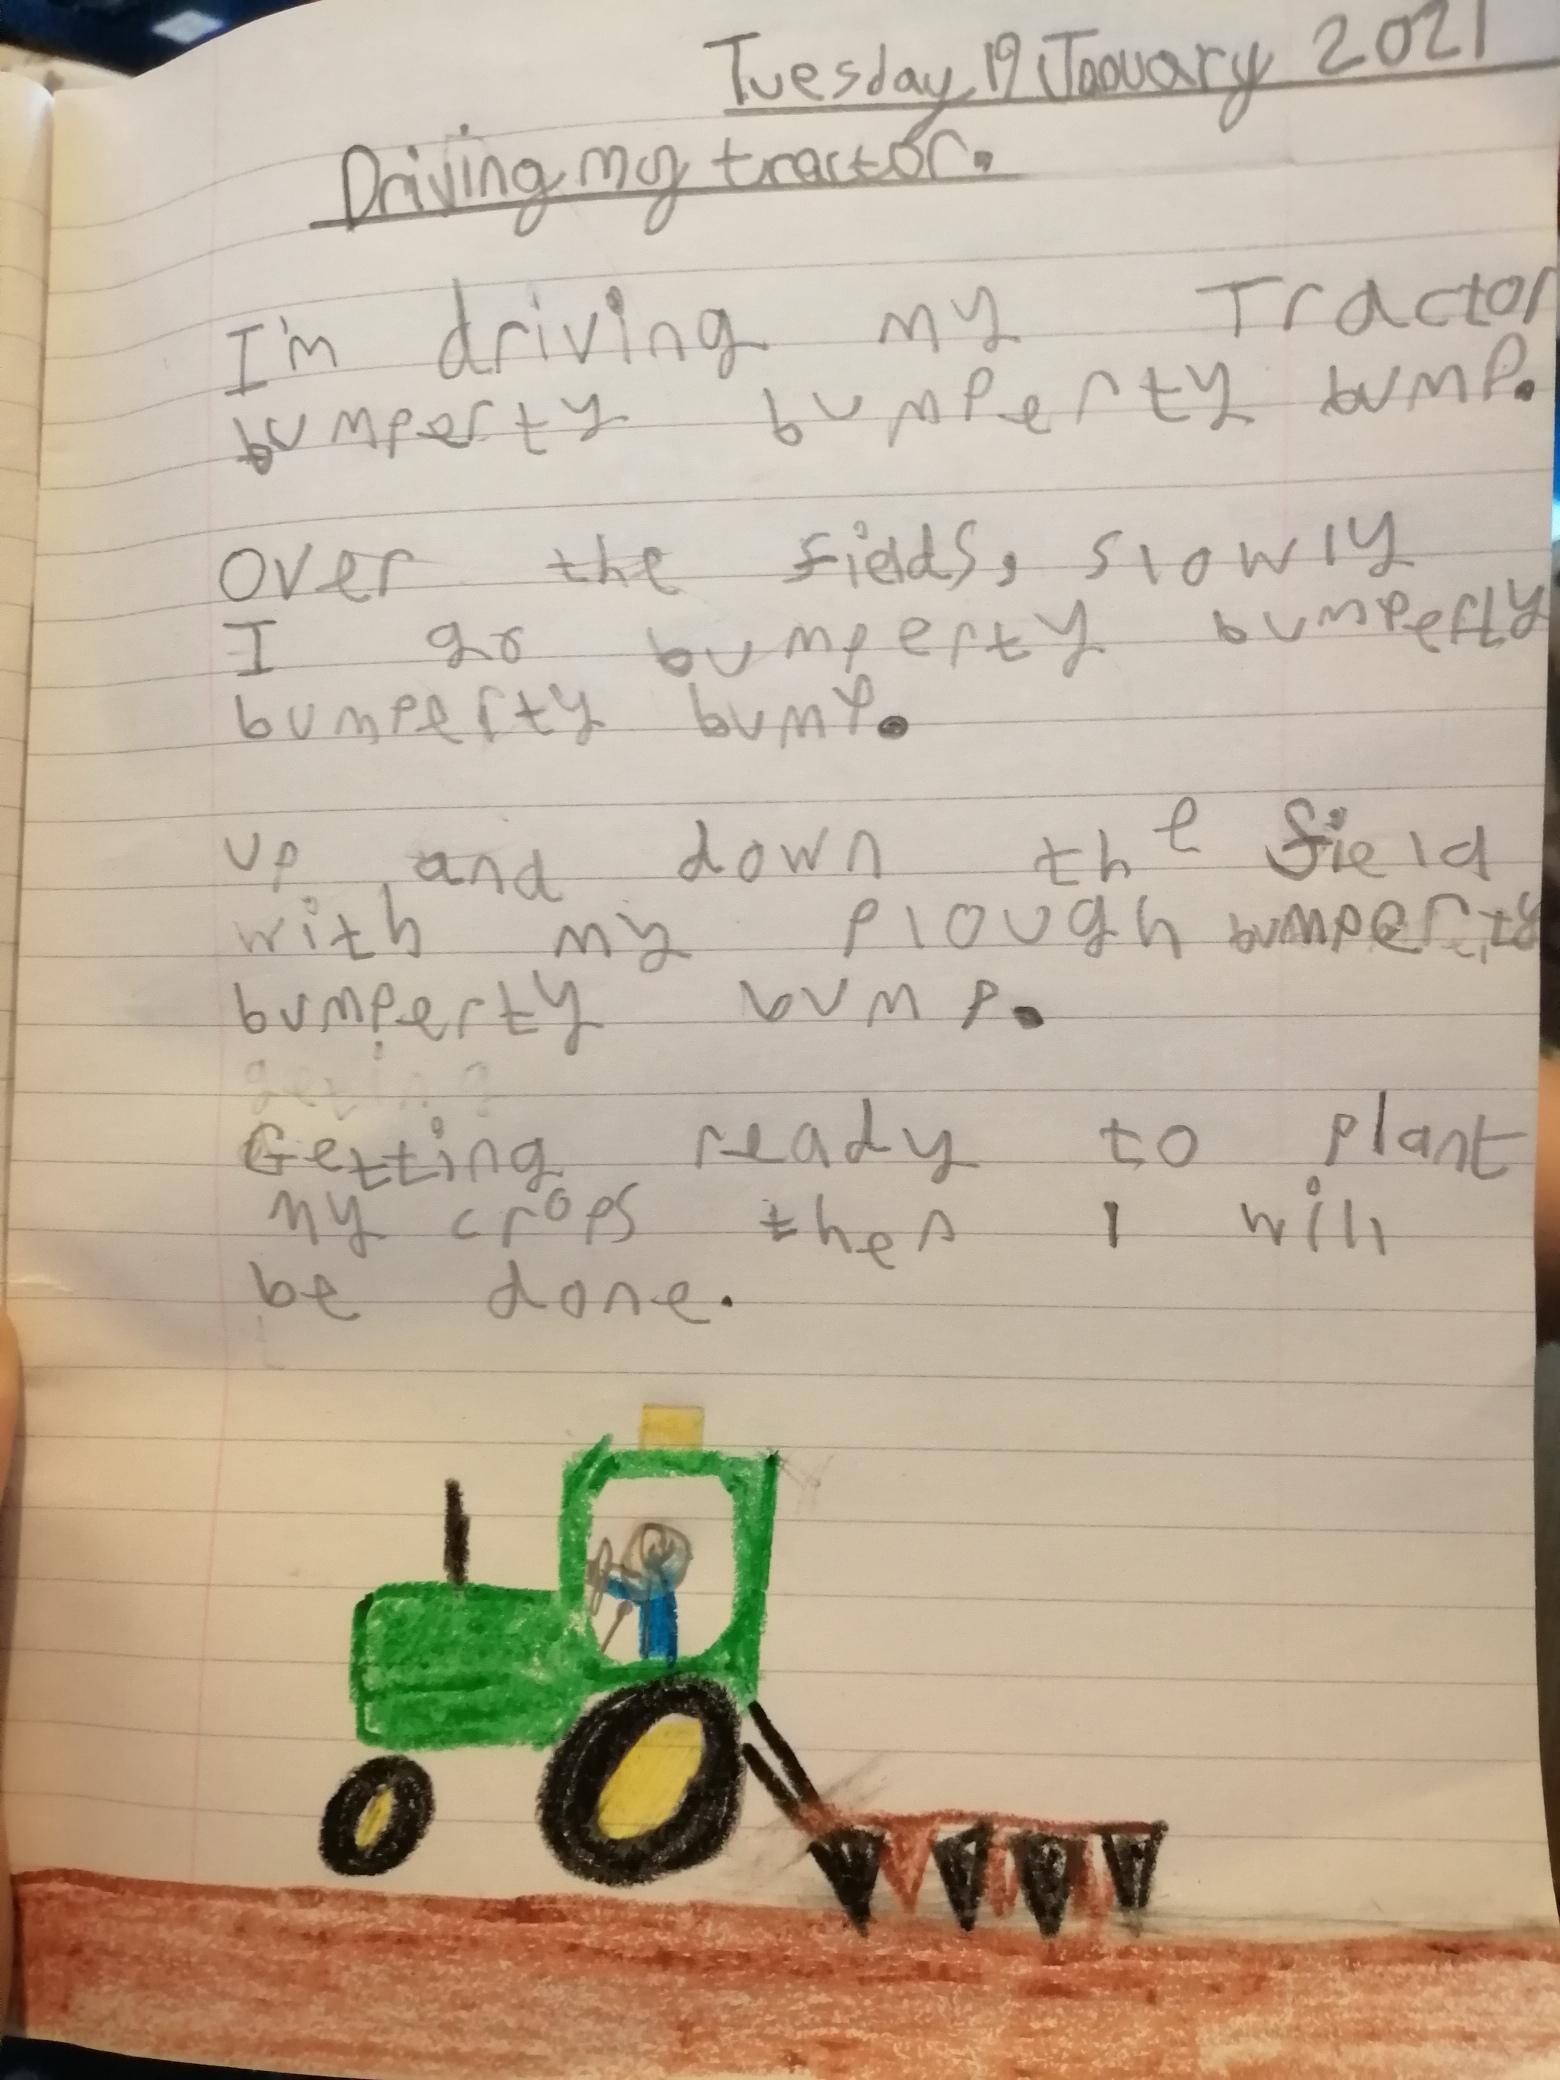 Tuesday 19 January 2021
Driving my tractor.
I'm driving my Tractor
bumperty bumperty bump.
Over the fields, slowly
I go bumperty bumperty
bumperty bump.
Up and down the field
with my plough bumperty
bumperty bump.
geting
Getting ready to plant
my crops then I will
be done.